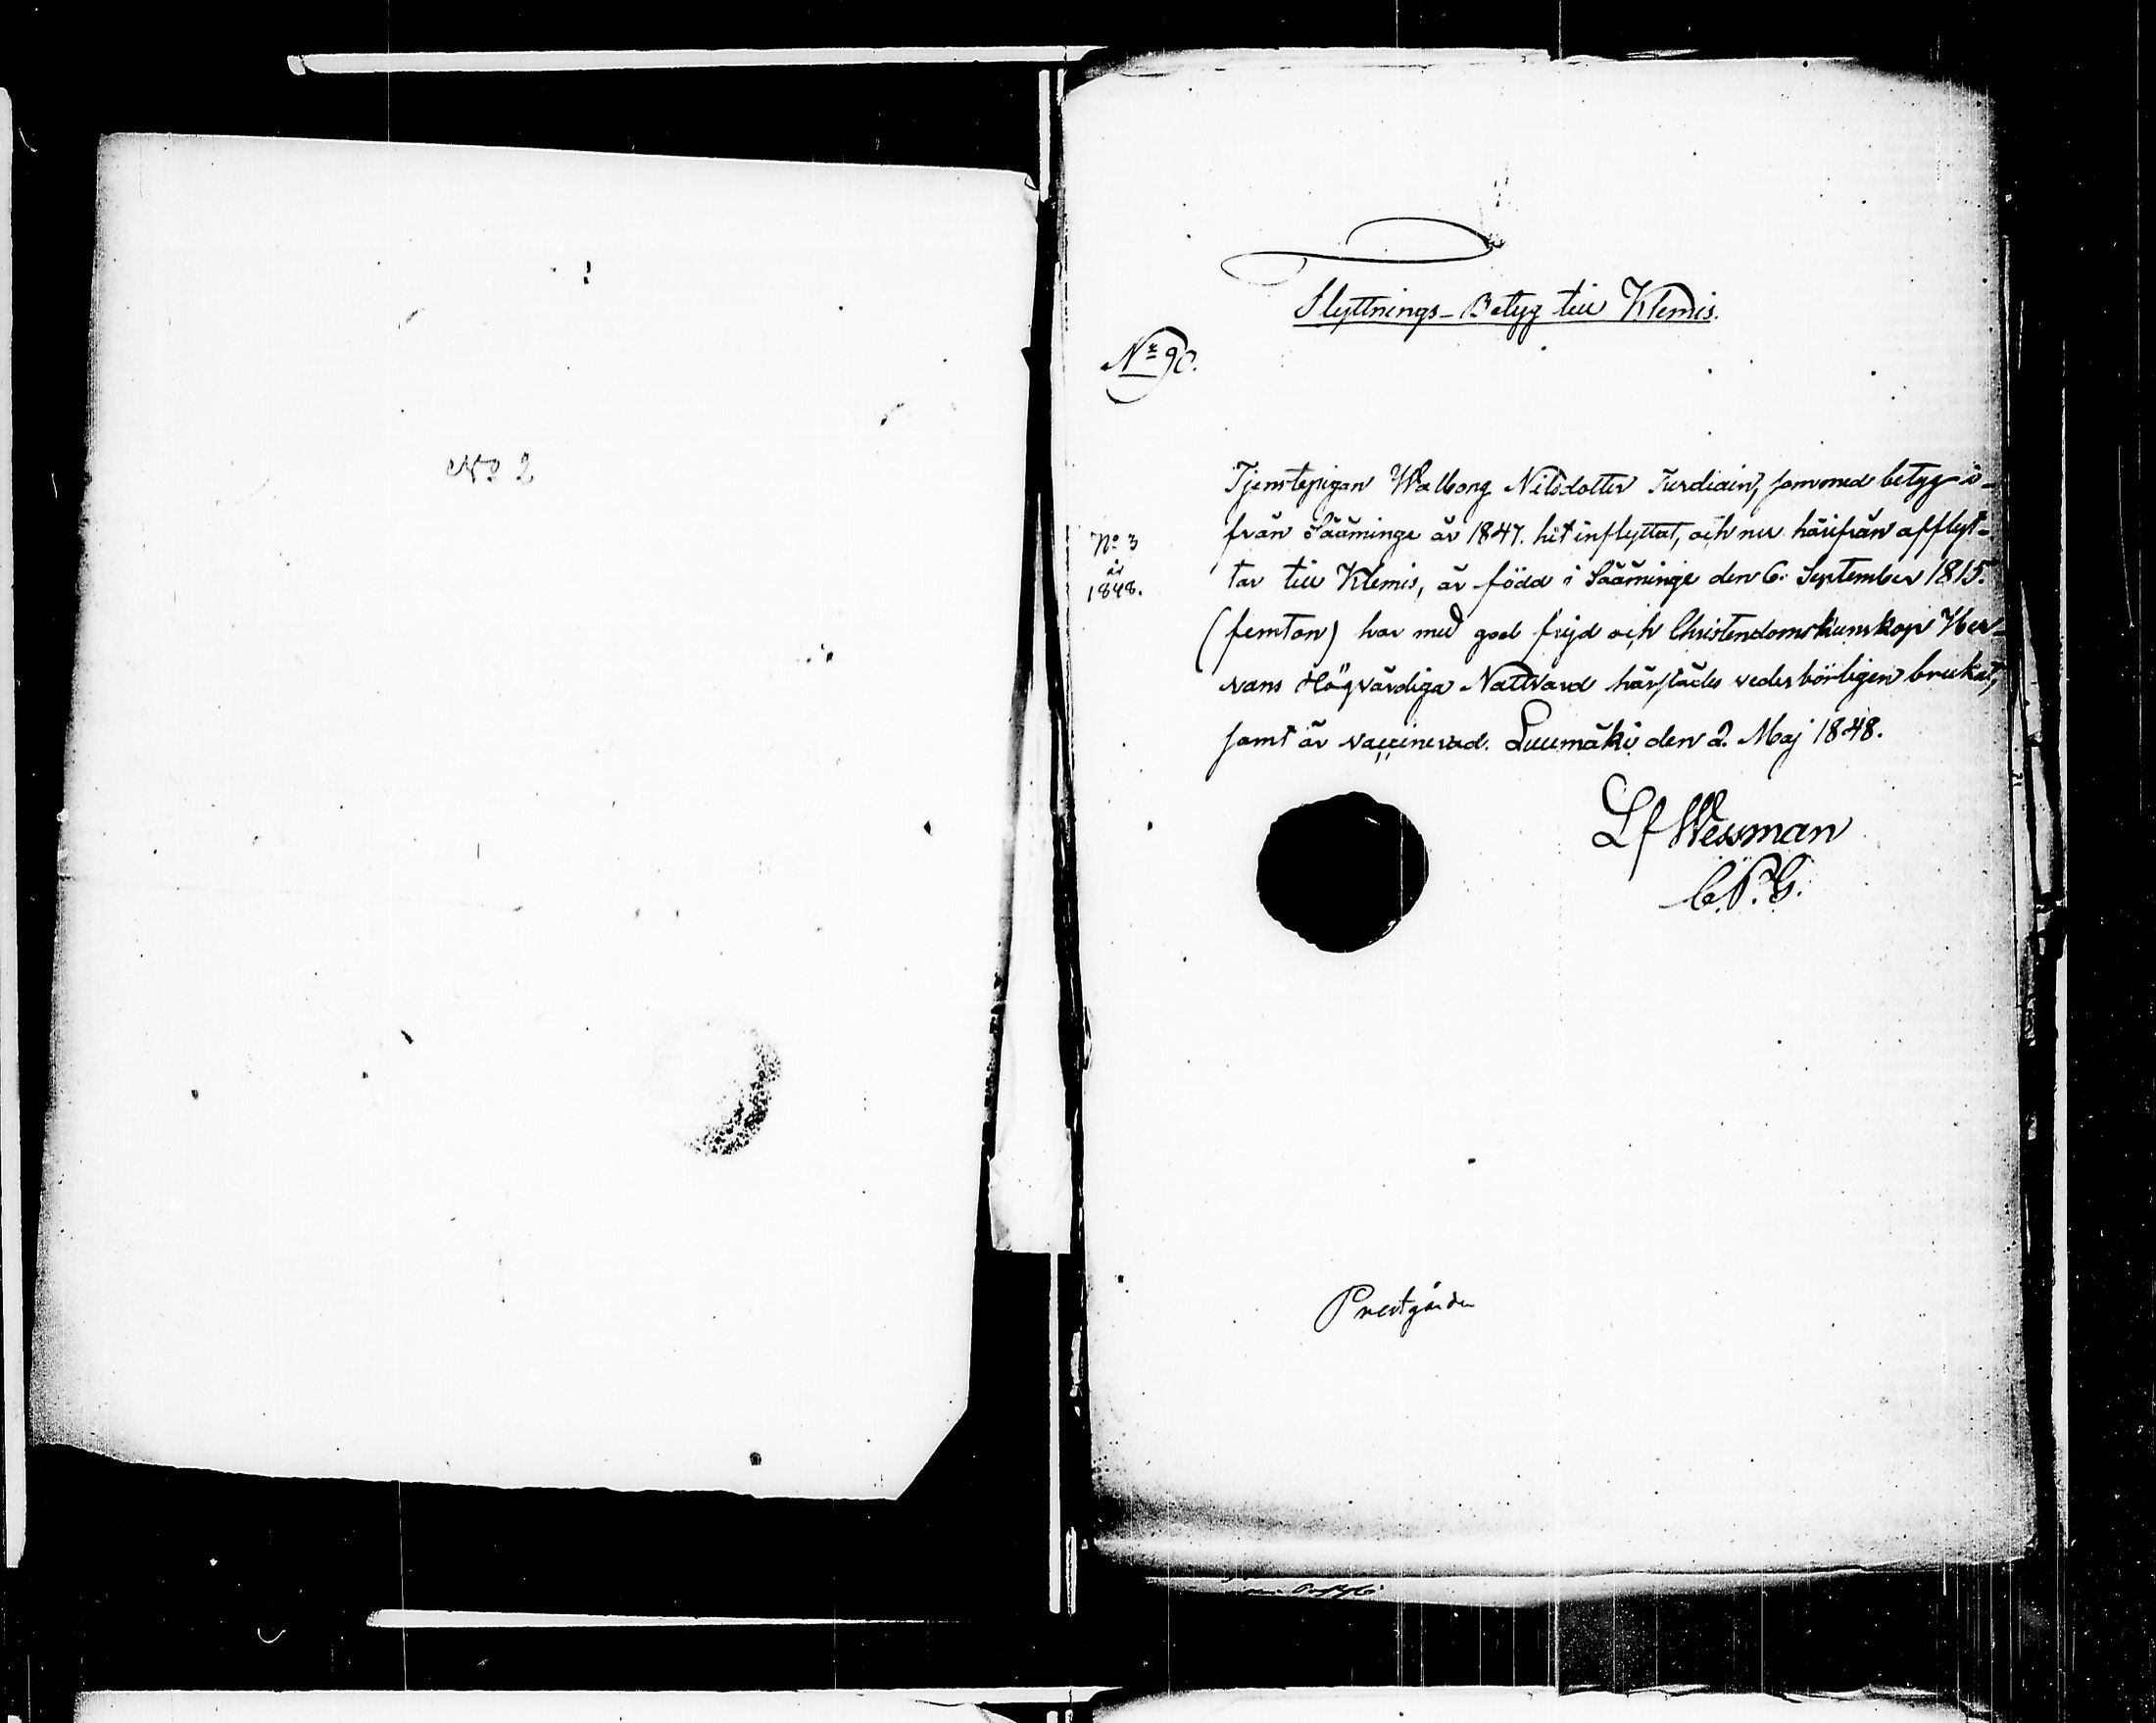 No 2
Flyttnings-Betyg till Klemis.
Nr 90.
Tjenstepigan Walborg Nilsdotter Turdiain, som med betyg i-
från Sääminge år 1847. hit inflyttat, och nu härifrån afflyt-
No 3
år
1848.
tar till Klemis, är född i Sääminge den 6. September 1815.
(femton) har med god frijd och Christendomskunskap Her-
rans Högvärdiga Nattvard härstädes vederbörligen brukat,
samt är vaccinerad. Luumäki den 2. Maj 1848.
Lf Wessman
C.P.G.
Prestgården